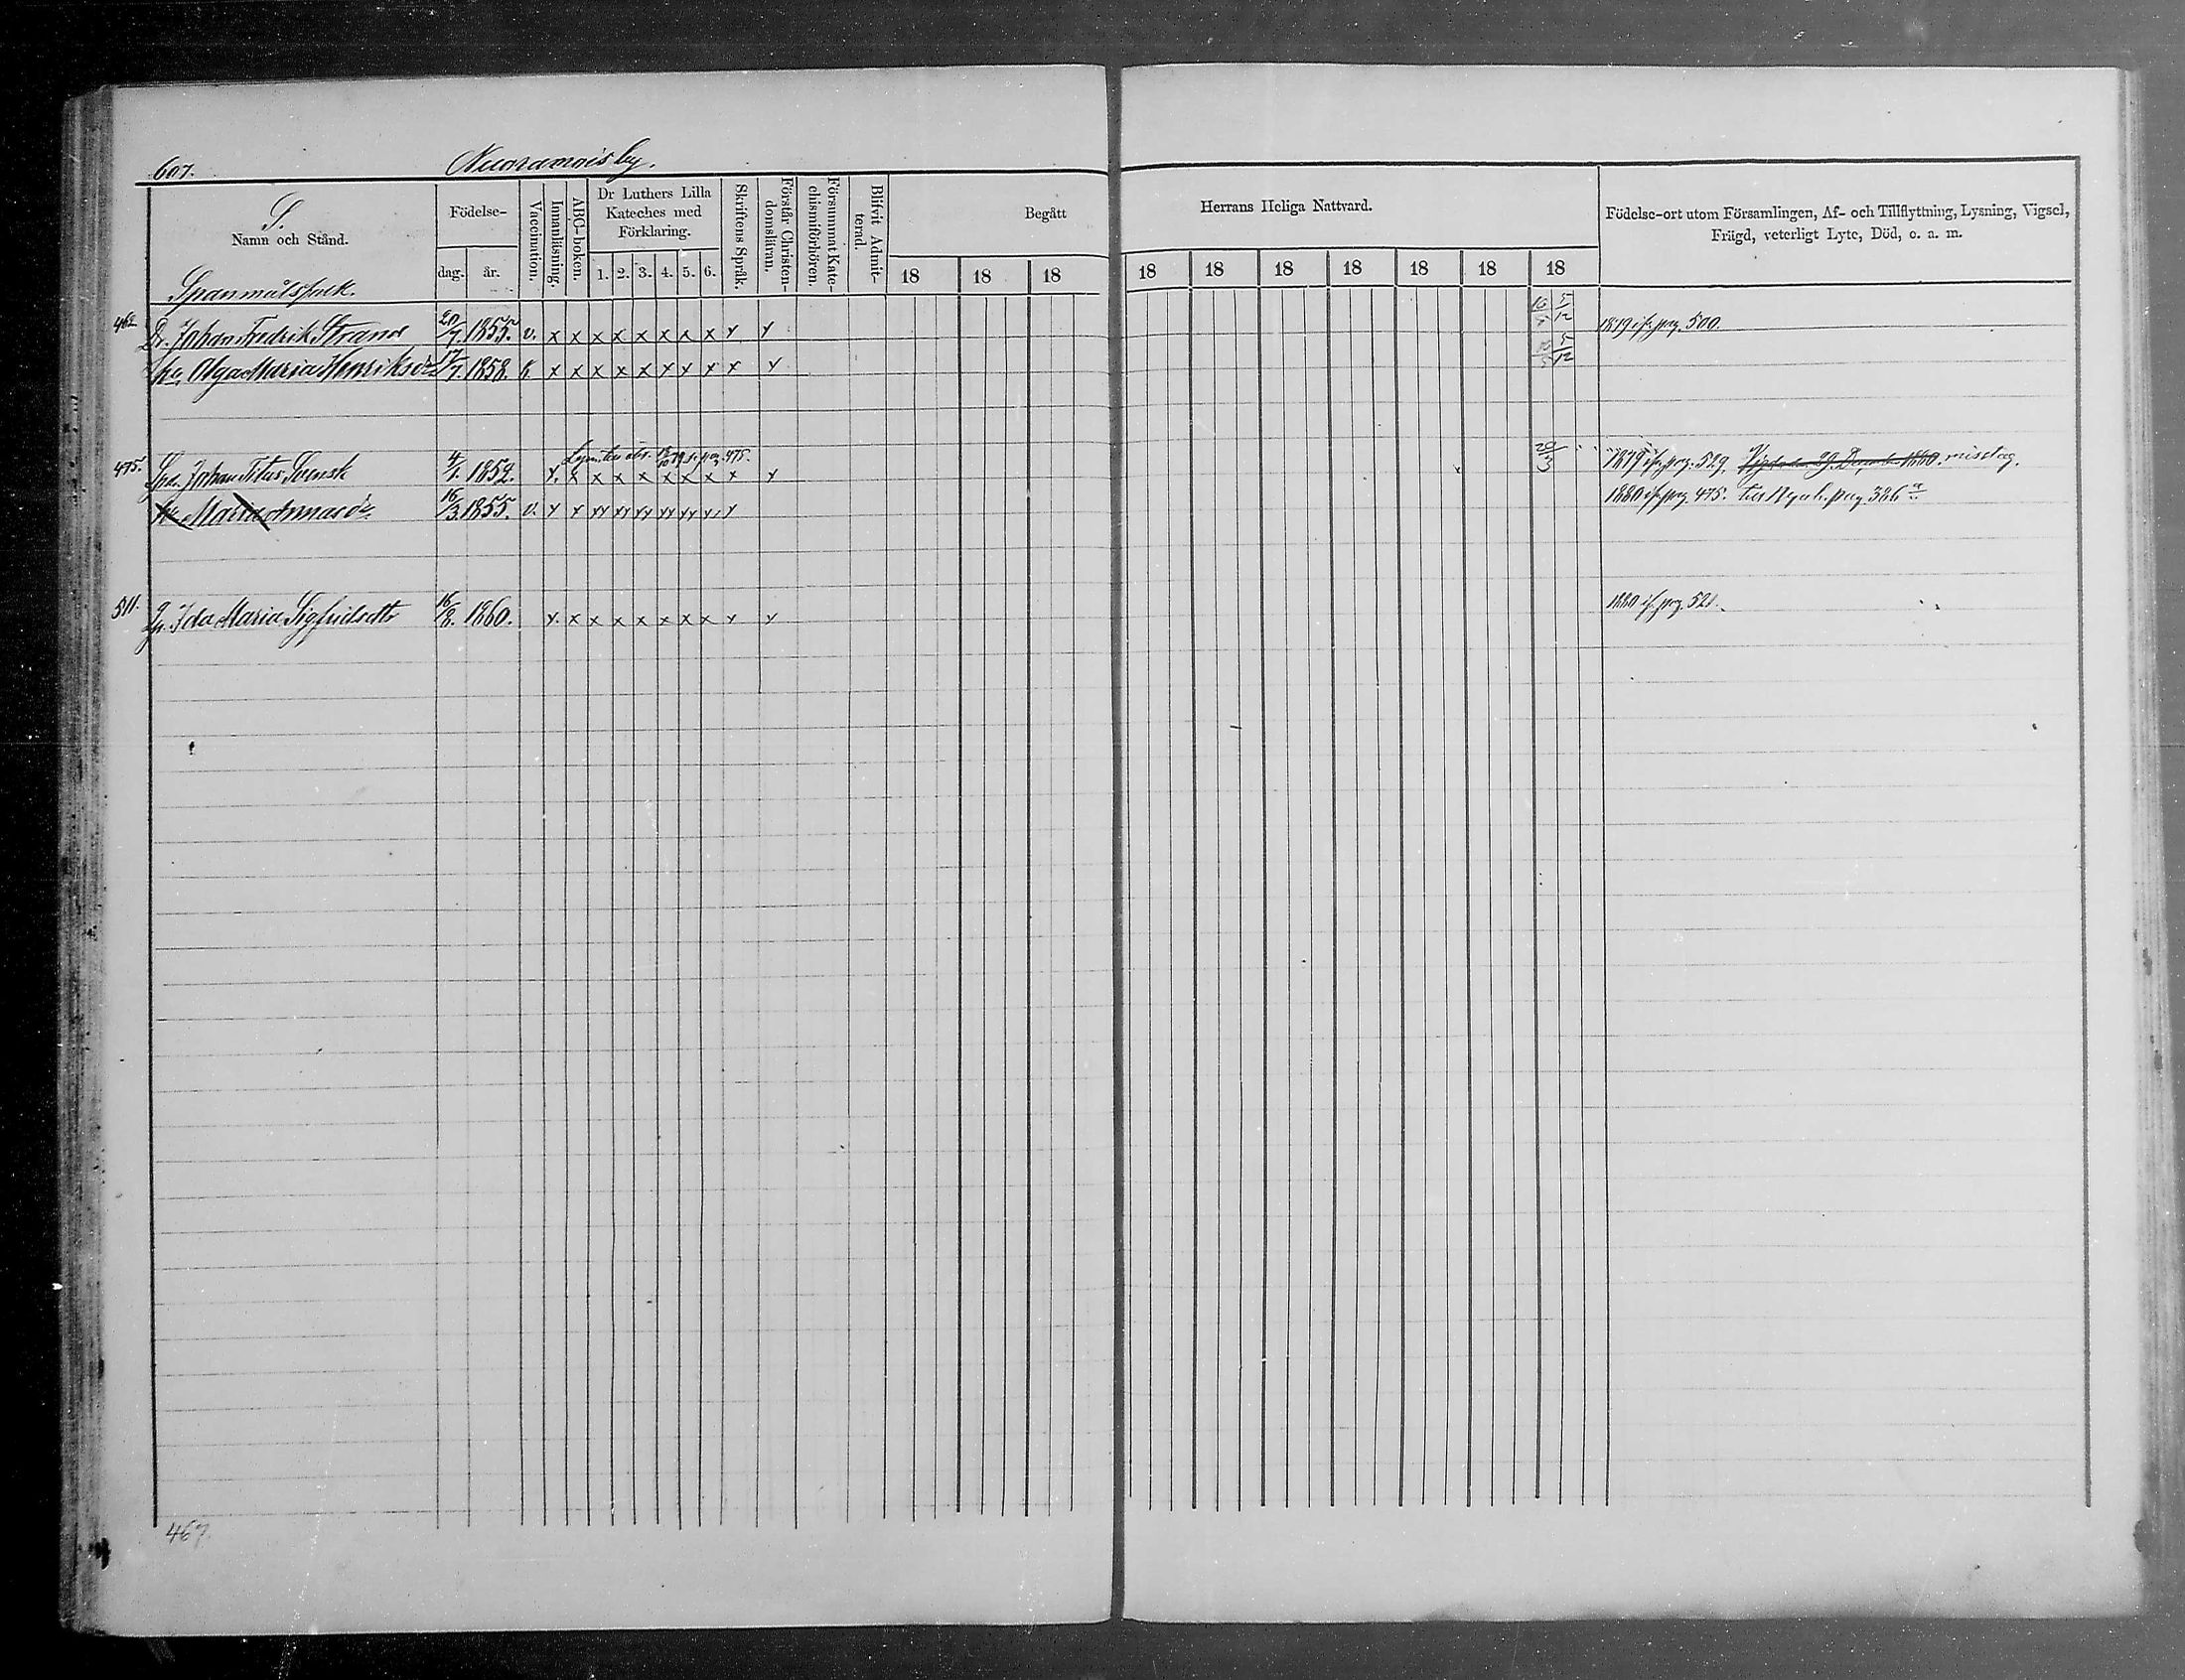 607.
S.
Namn och Stånd.
Födelse-
dag.
år.
Vaccination.
Innanläsning.
ABC-boken.
Dr Luthers Lilla
Kateches med
Förklaring.
1. 2. 3. 4. 5. 6.
Skriftens Språk.
Förstår Christen-
domsläran.
Försummat Kate-
chismiförhören.
Blifvit Admit-
terad.
Begått
18 18 18
Herrans Heliga Nattvard.
18 18 18 18 18 18 18
Födelse-ort utom Församlingen, Af- och Tillflyttning, Lysning, Vigsel,
Frägd, veterligt Lyte, Död, o. a. m.
462 Dr. Johan Fredrik Strand 20/7. 1855. v. x x x x x x x x y y 10/5 5/12 1879 ifr. pag. 500.
Hu. Olga Maria Henriksdr 17/7. 1858. x x x x x x x x x y 5/12
475. Johan Titus Svensk 4/1. 1852. y. x x x x x x x x y 29/3 1879 ifr. pag. 529. Vigda den 29 December 1880. misstag.
Hu Maria Annasdr. 16/3. 1855. v. 1880 ifr. pag. 475. pag. 386
511. Ida Maria Sigfridsdtr 16/8. 1860. y. x x x x x x x y y 1880 ifr. pag. 521.
467.